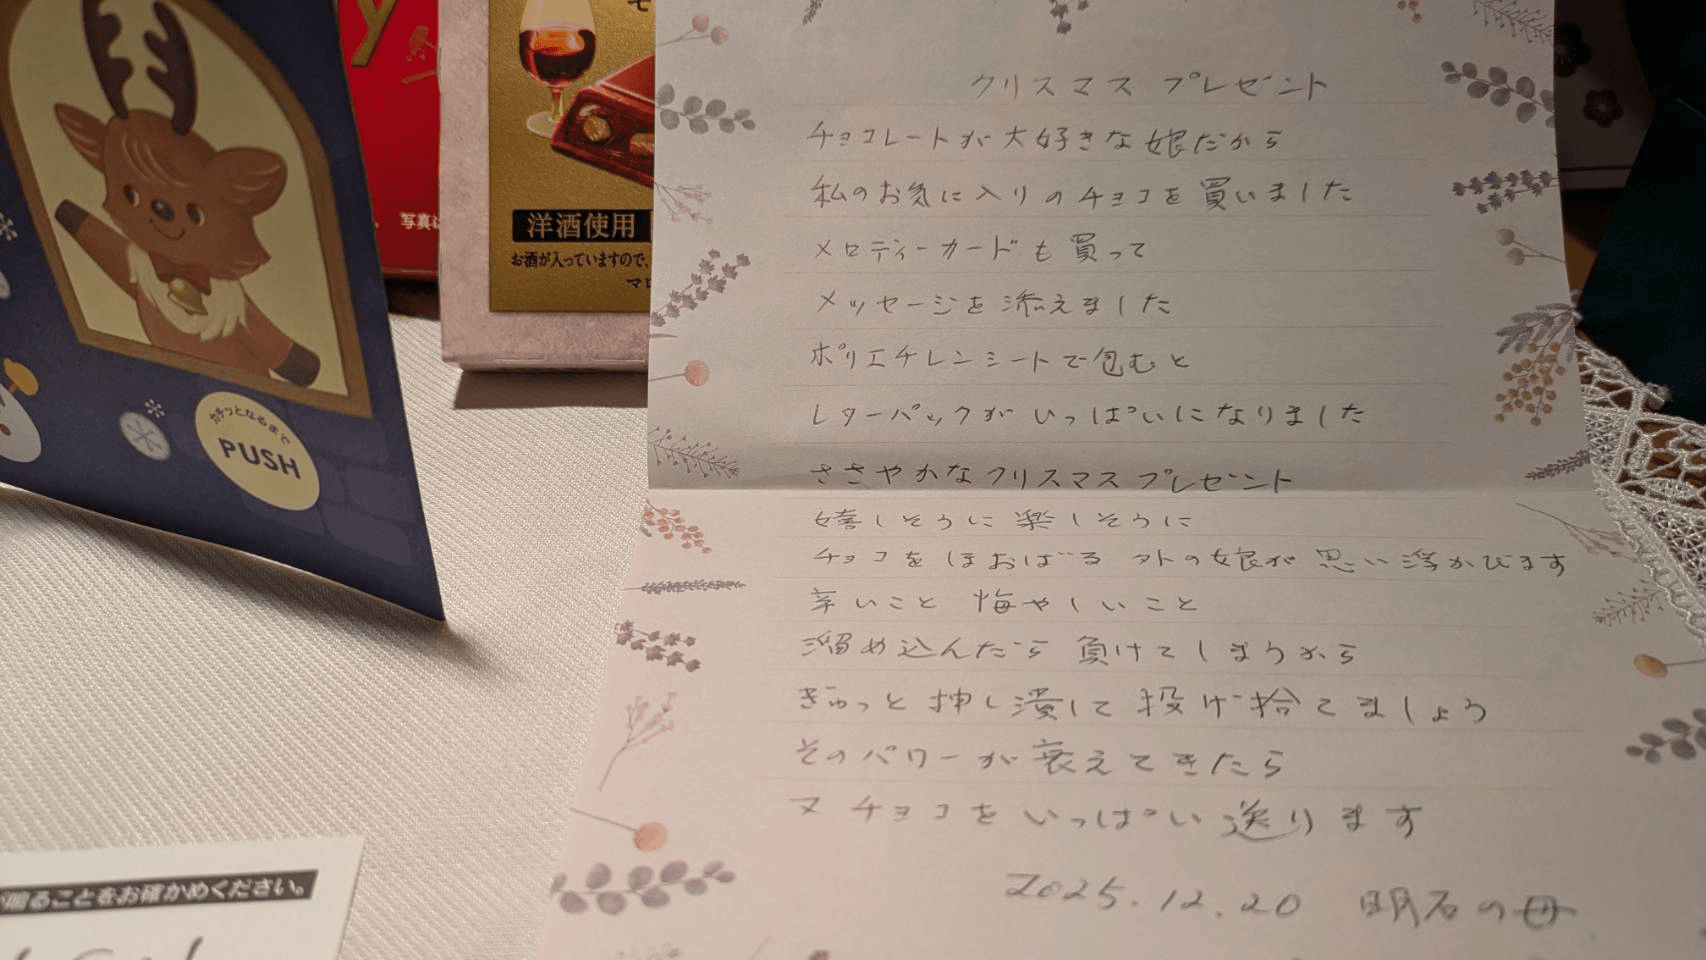 y
モ
洋酒使用
お酒が入っていますので、
マロ
写真は
カチッとなるまで
PUSH
鳴ることをお確かめください。
クリスマス プレゼント
チョコレートが大好きな娘だから
私のお気に入りのチョコを買いました
メロディーカードも買って
メッセージを添えました
ポリエチレンシートで包むと
レターパックがいっぱいになりました
ささやかなクリスマスプレゼント
嬉しそうに楽しそうに
チョコをほおばる 外の娘が思い浮かびます
辛いこと 悔やしいこと
溜め込んだら 負けてしまうから
ぎゅっと 押し潰して 投げ捨てましょう
そのパワーが衰えてきたら
又 チョコをいっぱい送ります
2025.12.20 明石の母